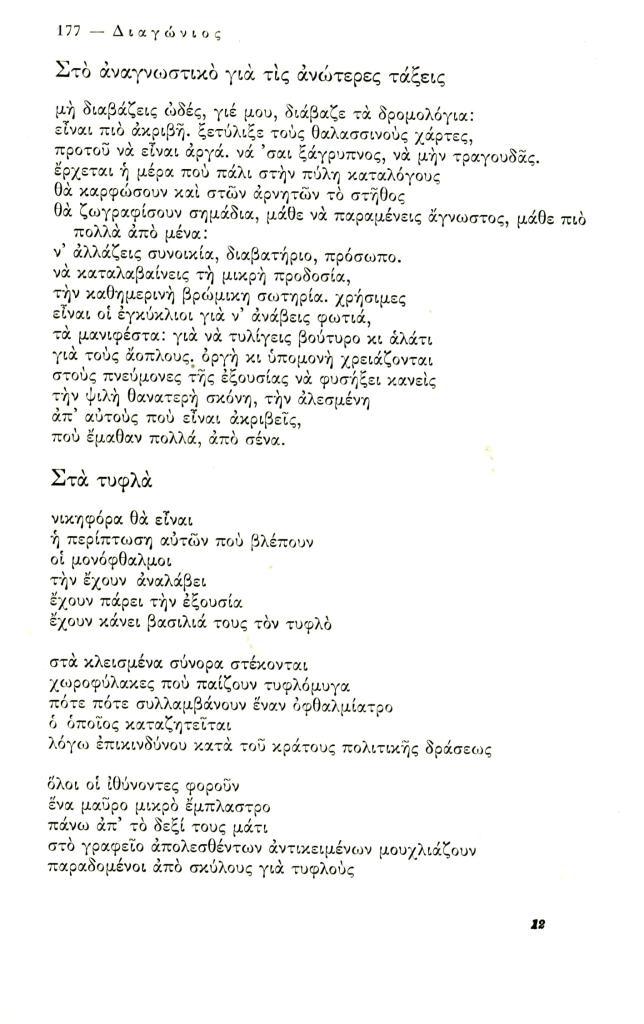 177 — Διαγώνιος
Στὸ ἀναγνωστικὸ γιὰ τὶς ἀνώτερες τάξεις
μὴ διαβάζεις ὠδές, γιέ μου, διάβαζε τὰ δρομολόγια:
εἶναι πιὸ ἀκριβῆ. ξετύλιξε τοὺς θαλασσινοὺς χάρτες,
προτοῦ νὰ εἶναι ἀργά. νά 'σαι ξάγρυπνος, νὰ μὴν τραγουδᾶς.
ἔρχεται ἡ μέρα ποὺ πάλι στὴν πύλη καταλόγους
θὰ καρφώσουν καὶ στῶν ἀρνητῶν τὸ στῆθος
θὰ ζωγραφίσουν σημάδια, μάθε νὰ παραμένεις ἄγνωστος, μάθε πιὸ
πολλὰ ἀπὸ μένα:
ν' ἀλλάζεις συνοικία, διαβατήριο, πρόσωπο.
νὰ καταλαβαίνεις τὴ μικρὴ προδοσία,
τὴν καθημερινὴ βρώμικη σωτηρία. χρήσιμες
εἶναι οἱ ἐγκύκλιοι γιὰ ν' ἀνάβεις φωτιά,
τὰ μανιφέστα: γιὰ νὰ τυλίγεις βούτυρο κι ἁλάτι
γιὰ τοὺς ἄοπλους. ὀργὴ κι ὑπομονὴ χρειάζονται
στοὺς πνεύμονες τῆς ἐξουσίας νὰ φυσήξει κανεὶς
τὴν ψιλὴ θανατερὴ σκόνη, τὴν ἀλεσμένη
ἀπ' αὐτοὺς ποὺ εἶναι ἀκριβεῖς,
ποὺ ἔμαθαν πολλά, ἀπὸ σένα.
Στὰ τυφλὰ
νικηφόρα θὰ εἶναι
ἡ περίπτωση αὐτῶν ποὺ βλέπουν
οἱ μονόφθαλμοι
τὴν ἔχουν ἀναλάβει
ἔχουν πάρει τὴν ἐξουσία
ἔχουν κάνει βασιλιά τους τὸν τυφλὸ
στὰ κλεισμένα σύνορα στέκονται
χωροφύλακες ποὺ παίζουν τυφλόμυγα
πότε πότε συλλαμβάνουν ἕναν ὀφθαλμίατρο
ὁ ὁποῖος καταζητεῖται
λόγω ἐπικινδύνου κατὰ τοῦ κράτους πολιτικῆς δράσεως
ὅλοι οἱ ἰθύνοντες φοροῦν
ἕνα μαῦρο μικρὸ ἔμπλαστρο
πάνω ἀπ' τὸ δεξί τους μάτι
στὸ γραφεῖο ἀπολεσθέντων ἀντικειμένων μουχλιάζουν
παραδομένοι ἀπὸ σκύλους γιὰ τυφλοὺς
12